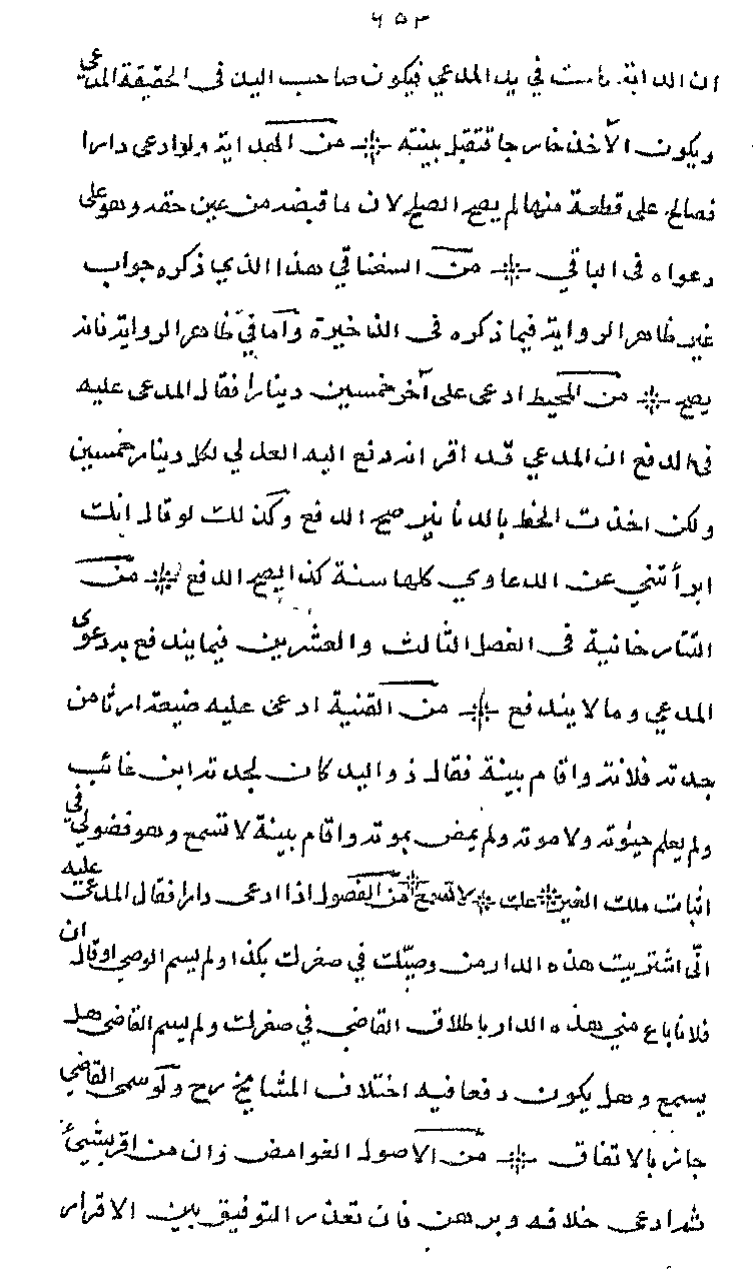 ٦٥٣
ان الدابة كانت في يد المدعي فيكون صاحب اليد في الحقيقة المدعي
ويكون الآخذ خارجا فتقبل بينته من الهداية ولو ادعى دارا
فصالح على قطعة منها لم يصح الصلح لان ما قبضه من عين حقه وهو على
دعواه في الباقي من السغناقي هذا الذي ذكره جواب
غير ظاهر الرواية فيما ذكره في الذخيرة وأما في ظاهر الرواية فانه
يصح من المحيط ادعى على آخر خمسين دينارا فقال المدعى عليه
في الدفع ان المدعي قد اقر انه دفع اليه العدلي لكل دينار خمسين
ولكن اخذت الخط بالدنانير صح الدفع وكذلك لو قال انك
ابرأتني عن الدعاوي كلها سنة كذا يصح الدفع من
التتارخانية في الفصل الثالث والعشرين فيما يندفع به دعوى
المدعي وما لا يندفع من القنية ادعى عليه ضيعة ارثا من
جدته فلانة واقام بينة فقال ذو اليد كان لجدته ابن غائب
ولم يعلم حيوته ولا موته ولم يمض بموته واقام بينة لا تسمع وهو فضولي في
اثبات ملك الغير علت لا تسمع من الفصول اذا ادعى دارا فقال المدعى عليه
انّي اشتريت هذه الدار من وصيّك في صغرك بكذا ولم يسم الوصي او قال ان
فلانا باع مني هذه الدار باطلاق القاضي في صغرك ولم يسم القاضي هل
يسمع وهل يكون دفعا فيه اختلاف المشايخ رح ولو سمى القاضي
جاز بالاتفاق من الاصول الغوامض وان من اقر بشيئ
ثم ادعى خلافه وبرهن فان تعذر التوفيق بين الاقرار